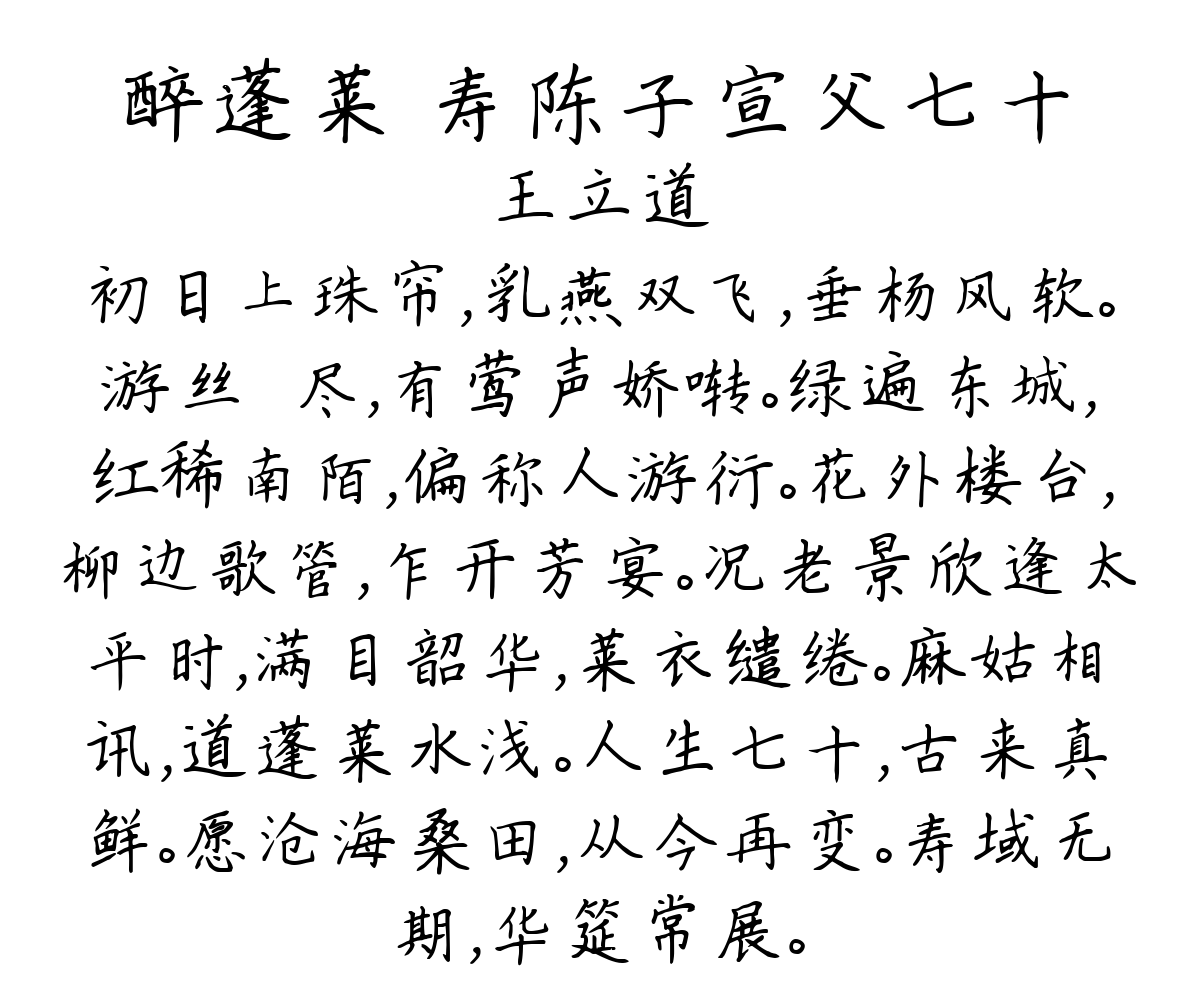 醉蓬莱 寿陈子宣父七十
王立道
初日上珠帘,乳燕双飞,垂杨风软。
游丝 尽,有莺声娇啭。绿遍东城,
红稀南陌,偏称人游衍。花外楼台,
柳边歌管,乍开芳宴。况老景欣逢太
平时,满目韶华,莱衣缱绻。麻姑相
讯,道蓬莱水浅。人生七十,古来真
鲜。愿沧海桑田,从今再变。寿域无
期,华筵常展。